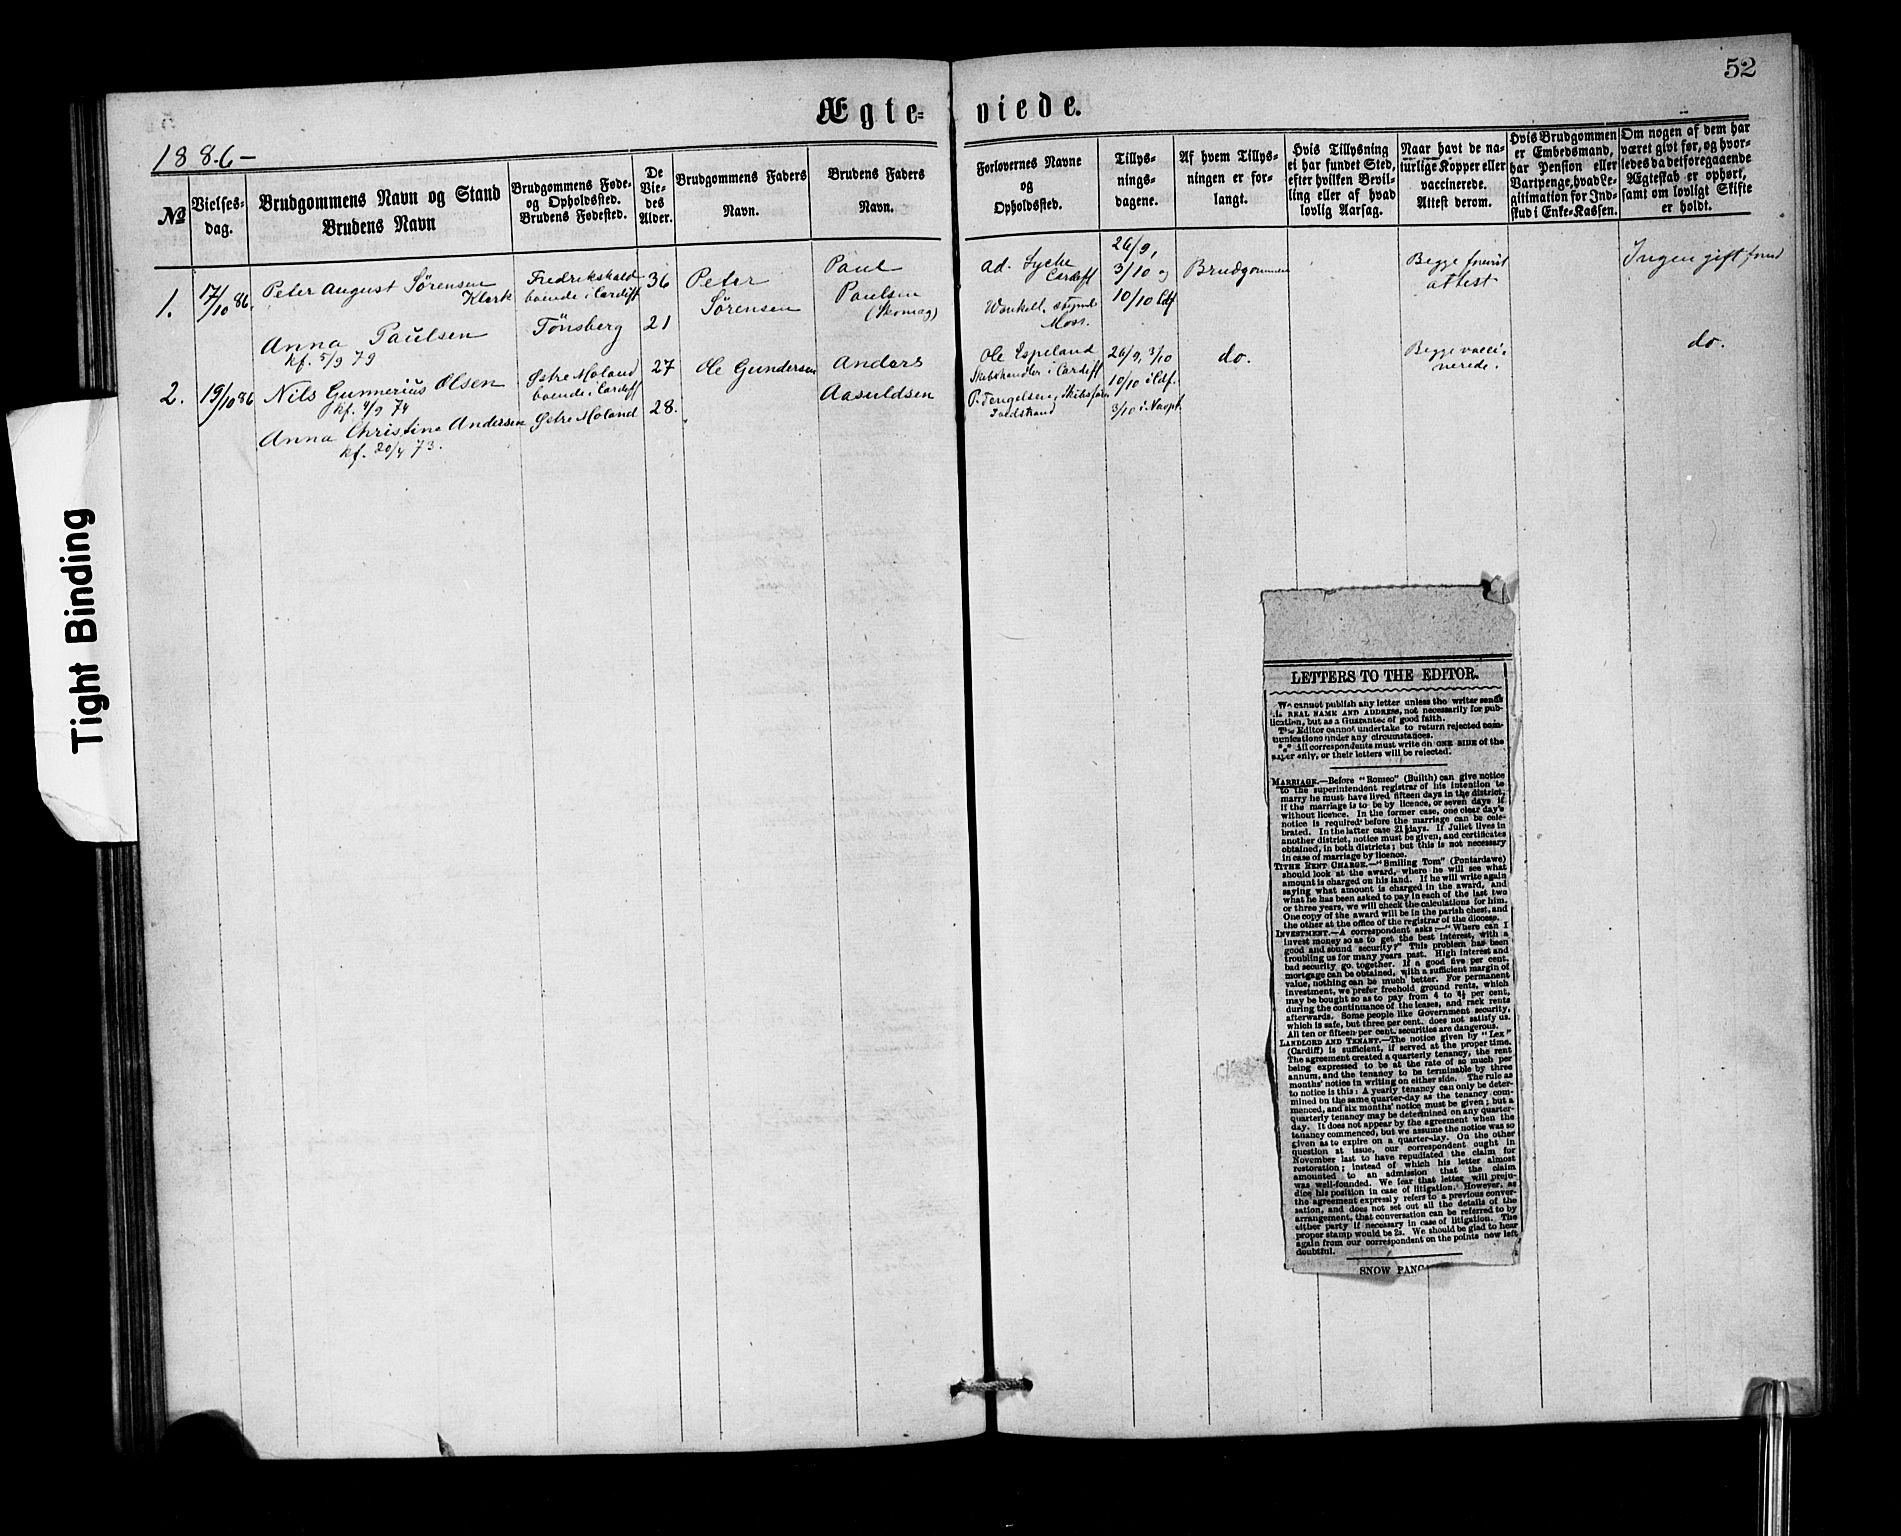 52
Ægte-viede.
1886-
№
Vielses-
dag.
Brudgommens Navn og Stand
Brudens Navn
Brudgommens Føde-
og Opholdssted.
Brudens Fødested.
De
Vie-
des
Alder.
Brudgommens Faders
Navn.
Brudens Faders
Navn.
Forlovernes Navne
og
Opholdssted.
Tillys-
nings-
dagene.
Af hvem Tillys-
ningen er for-
langt.
Hvis Tillysning
ei har fundet Sted,
efter hvilken Bevil-
ling eller af hvad
lovlig Aarsag.
Naar havt de na-
turlige Kopper eller
vaccinerede.
Attest derom.
Hvis Brudgommen
er Embedsmand,
har Pension eller
Vartpenge, hvad Le-
gitimation for Ind-
skud i Enke-Kassen.
Om nogen af dem har
været givt før, og hvor-
ledes da det foregaaende
Ægteskab er ophørt,
samt om lovligt Skifte
er holdt.
1.
17/10 86
Peter August Sørensen
Klerk
Anna Paulsen
kf. 5/9 79
Fredrikshald
boende i Cardiff
Tönsberg
36
21
Peter
Sørensen
Paul
Paulsen
(Skomag)
Ad. Lyche
Cardiff
Moss.
26/9,
3/10 og
10/10 Cdf
Brudgommen
Begge
attest
Ingen gift forud
2.
19/10 86
Nils Gunnerius Olsen
kf. 4/9 74
Anna Christine Andersen
kf. 20/4 73.
Østre Moland
boende i Cardiff
Østre Moland
27
28.
Ole Gundersen
Anders
Aasuldsen
Ole Espeland
Skibshandler i Cardiff
P. Tengelsen, Skibsfører
26/9, 3/10
10/10 i Cdf.
3/10 i Newpt.
do.
Begge vacci-
nerede.
do.
Tight Binding
LETTERS TO THE EDITOR.
We cannot publish any letter unless the writer sends
his REAL NAME AND ADDRESS, not necessarily for pub-
lication, but as a Guarantee of good faith.
The Editor cannot undertake to return rejected com-
munications under any circumstances.
*** All correspondents must write on ONE SIDE of the
paper only, or their letters will be rejected.
MARRIAGE.—Before "Romeo" (Builth) can give notice
to the superintendent registrar of his intention to
marry he must have lived fifteen days in the district,
if the marriage is to be by licence, or seven days if
without licence. In the former case, one clear day's
notice is required before the marriage can be cele-
brated. In the latter case 21 days. If Juliet lives in
another district, notice must be given, and certificates
obtained, in both districts; but this is not necessary
in case of marriage by licence.
TITHE RENT CHARGE.—"Smiling Tom" (Pontardawe)
should look at the award, where he will see what
amount is charged on his land. If he will write again
saying what amount is charged in the award, and
what he has been asked to pay in each of the last two
or three years, we will check the calculations for him.
One copy of the award will be in the parish chest, and
the other at the office of the registrar of the diocese.
INVESTMENT.—A correspondent asks:—"Where can I
invest money so as to get the best interest, with a
good and sound security?" This problem has been
troubling us for many years past. High interest and
bad security go together. If a good five per cent.
mortgage can be obtained, with a sufficient margin of
value, nothing can be much better. For permanent
investment, we prefer freehold ground rents, which
may be bought so as to pay from 4 to 4½ per cent,
during the continuance of the leases, and rack rents
afterwards. Some people like Government security,
which is safe, but three per cent. does not satisfy us.
All ten or fifteen per cent. securities are dangerous.
LANDLORD AND TENANT.—The notice given by "Lex"
(Cardiff) is sufficient, if served at the proper time.
The agreement created a quarterly tenancy, the rent
being expressed to be at the rate of so much per
annum, and the tenancy to be terminable by three
months' notice in writing on either side. The rule as
to notice is this: A yearly tenancy can only be deter-
mined on the same quarter-day as the tenancy com-
menced, and six months' notice must be given; but a
quarterly tenancy may be determined on any quarter-
day. It does not appear by the agreement when the
tenancy commenced, but we assume the notice was so
given as to expire on a quarter-day. On the other
question at issue, our correspondent ought in
November last to have repudiated the claim for
restoration; instead of which his letter almost
amounted to an admission that the claim
was well-founded. We fear that letter will preju-
dice his position in case of litigation. However, as
the agreement expressly refers to a previous conver-
sation, and does not set out all the details of the
arrangement, that conversation can be referred to by
either party if necessary in case of litigation. The
proper stamp would be 2s. We should be glad to hear
again from our correspondent on the points now left
doubtful.
SNOW PANC